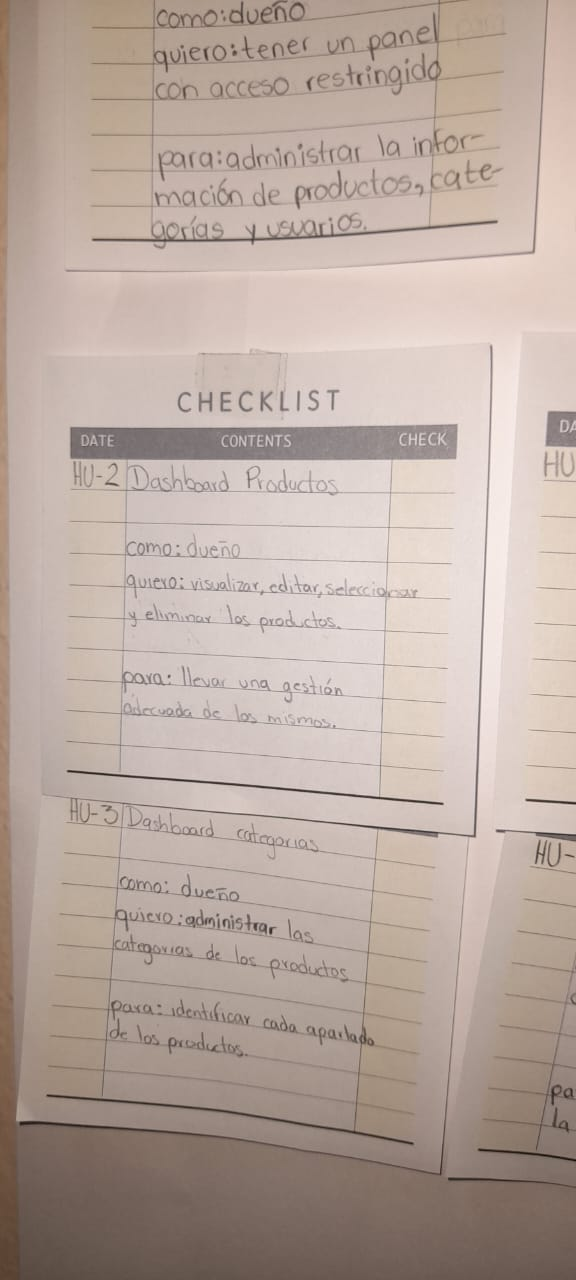 como:dueño
quiero:tener un panel
con acceso restringido
para:administrar la infor-
mación de productos, cate-
gorías y usuarios.
CHECKLIST
DATE CONTENTS CHECK
HU-2 Dashboard Productos
como: dueño
quiero: visualizar, editar, seleccionar
y eliminar los productos.
para: llevar una gestión
adecuada de los mismos.
HU-3 Dashboard categorias
como: dueño
quiero:administrar las
categorias de los productos
para: identificar cada apartado
de los productos.
DA
HU
HU-
pa
la